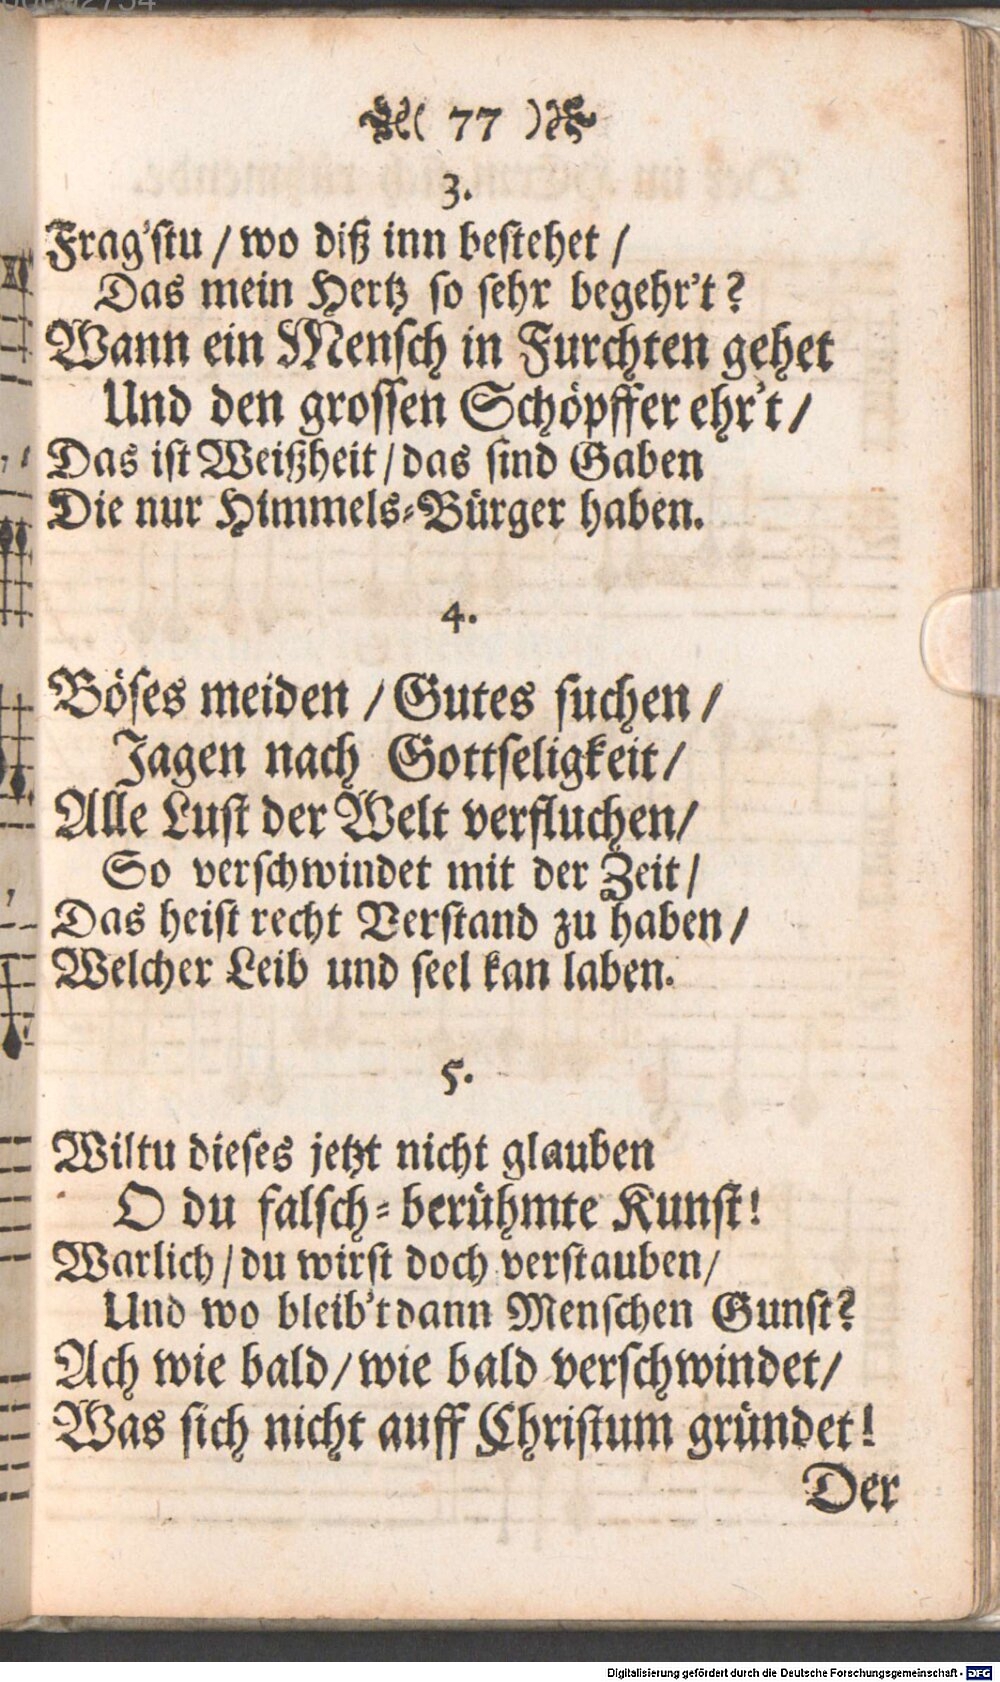 ( 77 )
3.
Frag'stu / wo diß inn bestehet /
Das mein Hertz so sehr begehr't?
Wann ein Mensch in Furchten gehet
Und den grossen Schöpffer ehr't /
Das ist Weißheit / das sind Gaben
Die nur Himmels-Bürger haben.
4.
Böses meiden / Gutes suchen /
Jagen nach Gottseligkeit /
Alle Lust der Welt verfluchen /
So verschwindet mit der Zeit /
Das heist recht Verstand zu haben /
Welcher Leib und seel kan laben.
5.
Wiltu dieses jetzt nicht glauben
O du falsch-berühmte Kunst!
Warlich / du wirst doch verstauben /
Und wo bleib't dann Menschen Gunst?
Ach wie bald / wie bald verschwindet /
Was sich nicht auff Christum gründet!
Der
Digitalisierung gefördert durch die Deutsche Forschungsgemeinschaft - DFG